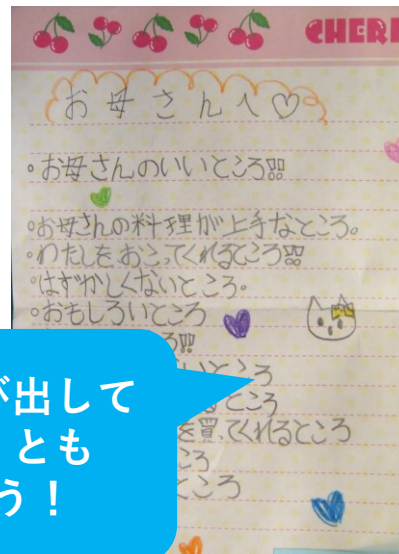 CHER
お母さんへ♡
◦お母さんのいいところ!!
◦お母さんの料理が上手なところ。
◦わたしをおこってくれるところ!!
◦はずかしくないところ。
◦おもしろいところ
ろ!!
いところ
るところ
を買ってくれるところ
ころ
ところ
が出して
とも
う！